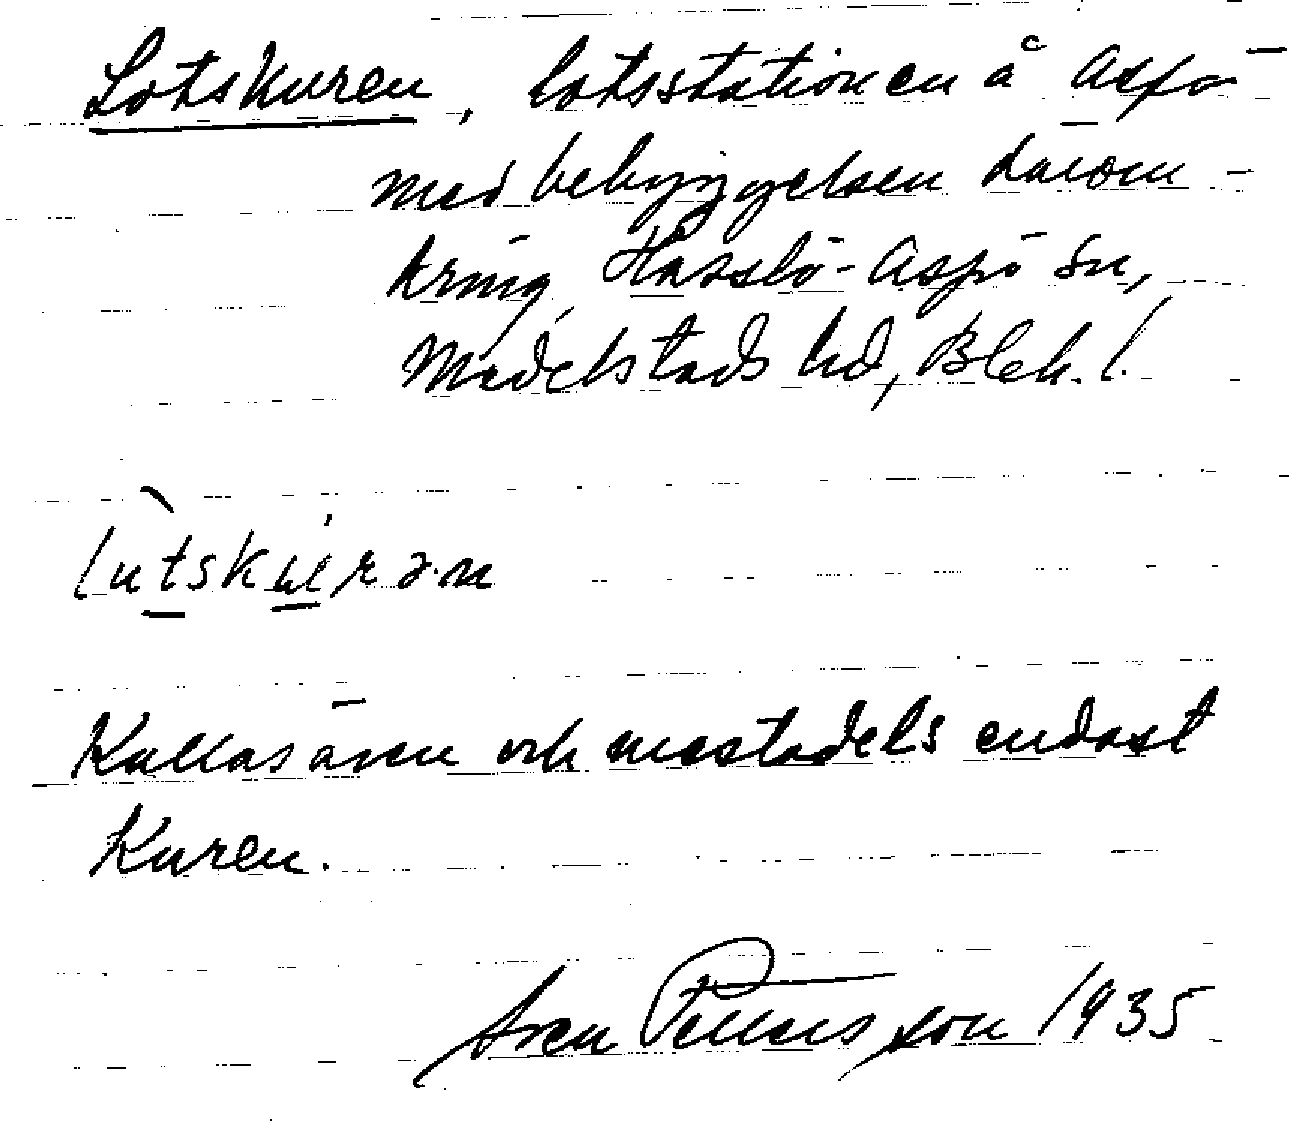 Lotskuren, lotsstationen å Aspö
med bebyggelsen därom-
kring, Hasslö-Aspö sn,
Medelstads hd, Blek. l.
lutskurən
Kallas även och mestadels endast
Kuren.
Sven Pettersson 1935